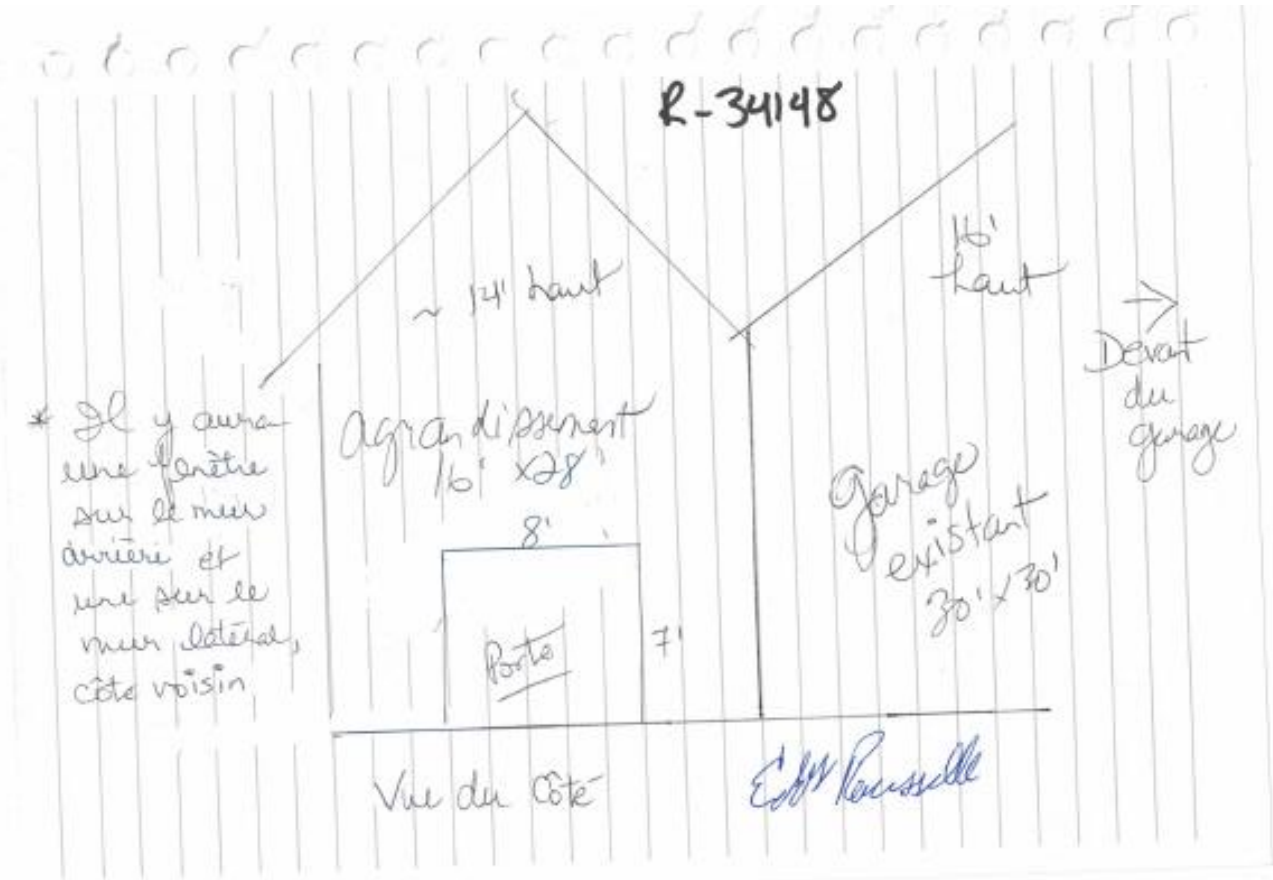 R-34148
~ 14' haut
16'
haut
→
Devant
du
garage
* Il y aura
une fenêtre
sur le mur
arrière et
une sur le
mur latéral,
côté voisin
agrandissement
16' x 28'
8'
Porte
7'
Garage
existant
30' x 30'
Vue du Côté